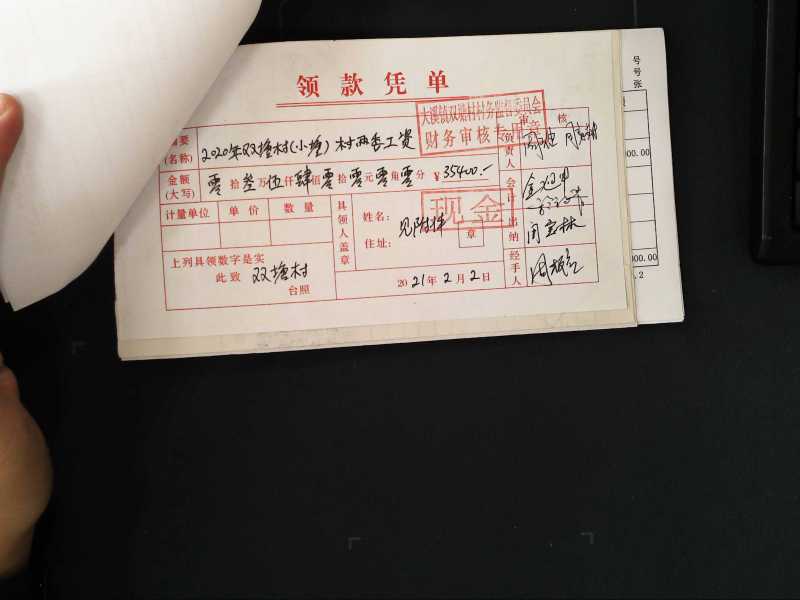 领款凭单
大溪镇双塘村村务监督委员会
财务审核专用章
审核
摘要
(名称)
2020年双塘村(小塘)村两委工资
负责人
金额
(大写)
零拾叁万伍仟肆佰零拾零元零角零分 ¥35400.-
会计
计量单位 单价 数量
具领人盖章
姓名:
住址:
见附件
现金
章
出纳
上列具领数字是实
此致 双塘村
台照
2021年2月2日
经手人
号
号
张
000.00
000.00
.2